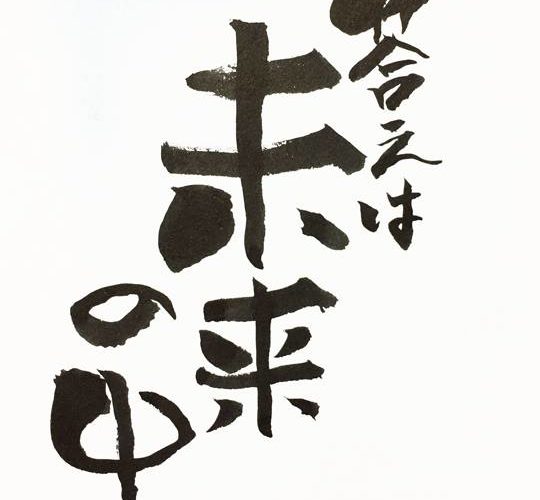 答えは
未来
の中